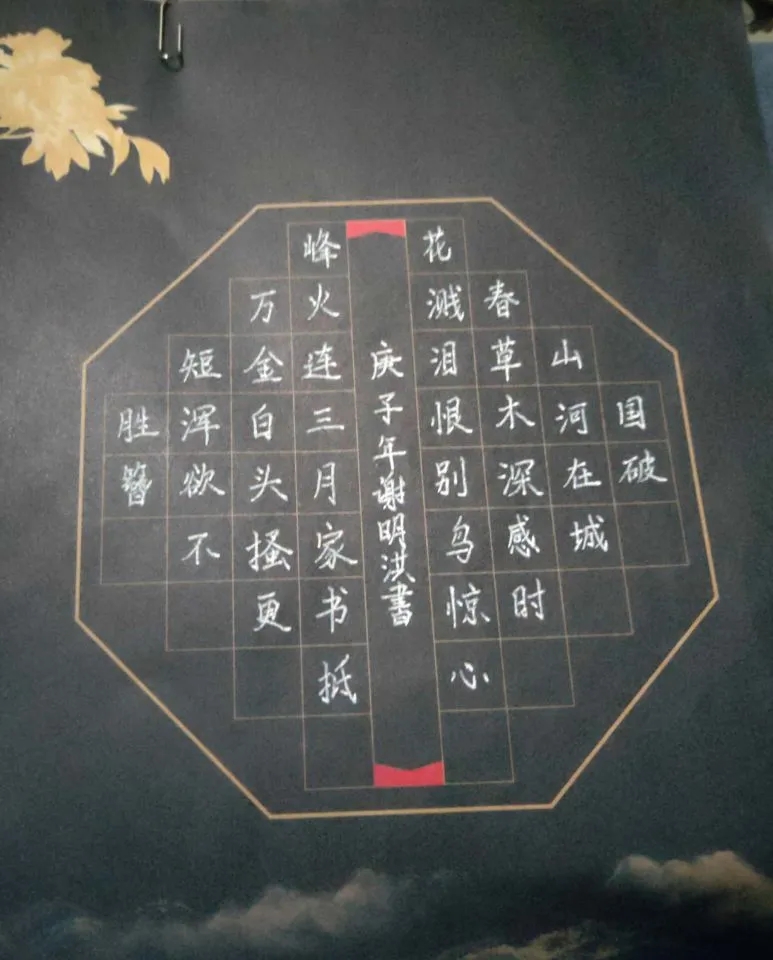 国破
山河在城
春草木深感时
花溅泪恨别鸟惊心
庚子年谢明洪書
峰火连三月家书抵
万金白头搔更
短浑欲不
胜簪